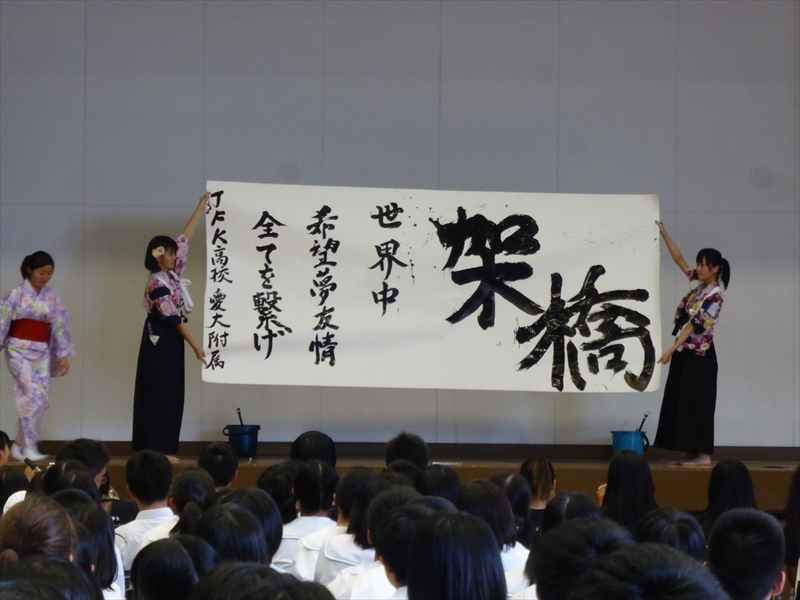 架橋
世界中
希望夢友情
全てを繋げ
JFK高校 愛大附属